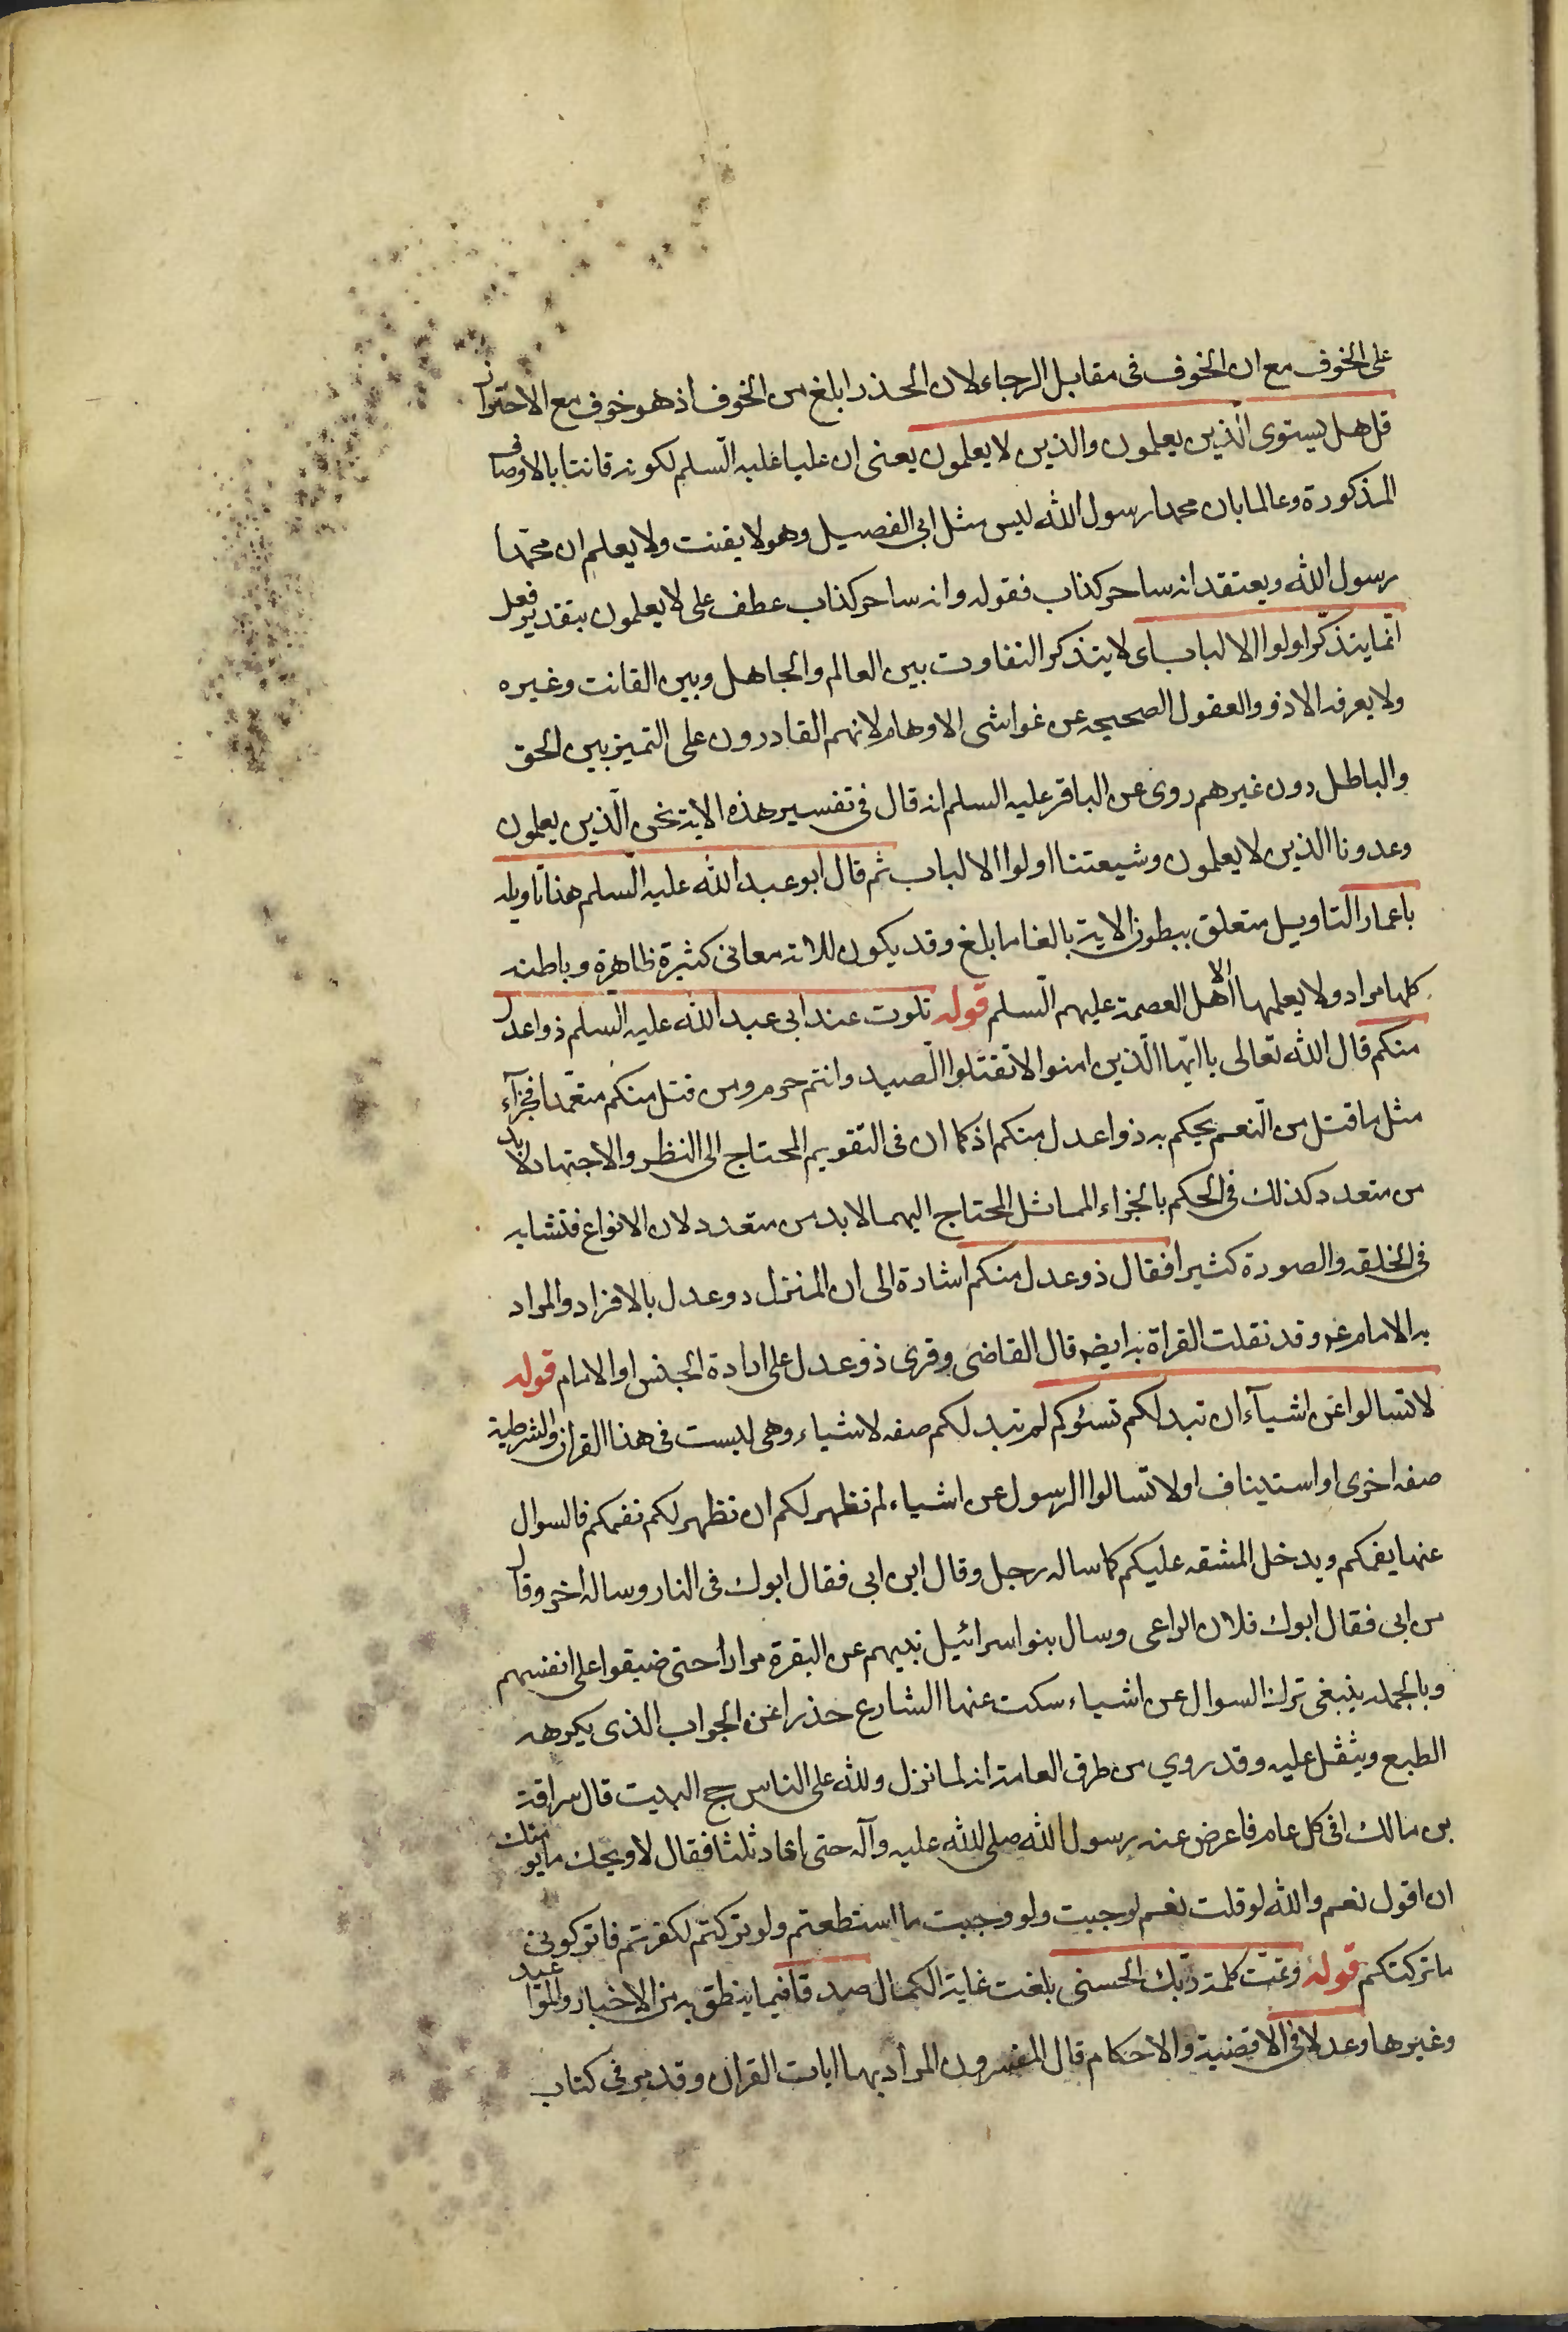 على الخوف مع ان الخوف فى مقابل الرجاء لان الحذر ابلغ من الخوف اذ هو خوف مع الاحتراز
قل هل يستوى الّذين يعلمون والذين لا يعلمون يعنى ان عليا عليه السّلم لكونه قانتا بالاوصاف
المذكورة وعالما بان محمدا رسول الله ليس مثل ابى الفصيل وهو لا يقنت ولا يعلم ان محمّدا
رسول الله ويعتقد انه ساحر كذاب فقوله وانه ساحر كذاب عطف على لا يعلمون بتقدير فعل
انّما يتذكّر اولوا الالباب اى لا يتذكر التفاوت بين العالم والجاهل وبين القانت وغيره
ولا يعرفه الا ذوو العقول الصحيحه عن غواشى الاوهام لانهم القادرون على التميز بين الحق
والباطل دون غيرهم روى عن الباقر عليه السلم انه قال فى تفسير هذه الاية نحن الّذين يعلمون
وعدونا الذين لا يعلمون وشيعتنا اولوا الالباب ثم قال ابو عبد الله عليه السّلم هذا تاويله
يا عمار التاويل متعلق ببطون الاية بالغا ما بلغ وقد يكون للاية معانى كثيرة ظاهرة وباطنه
كلها مراد ولا يعلمها الا اهل العصمة عليهم السّلم قوله تلوت عند ابى عبد الله عليه السّلم ذوا عدل
منكم قال الله تعالى يا ايّها الّذين امنوا لا تقتلوا الصيد وانتم حرم ومن قتل منكم متعمّدا فجزآء
مثل ما قتل من النّعم يحكم به ذوا عدل منكم اذ كما ان فى التقويم المحتاج الى النظر والاجتهاد لا بد
من متعدد كذلك فى الحكم بالجزاء المماثل المحتاج اليهما لا بد من متعدد لان الانواع قتشابه
فى الخلقه والصورة كثيرا فقال ذو عدل منكم اشارة الى ان المنزل ذو عدل بالافراد والمراد
به الامام ع وقد نقلت القراة به ايضه قال القاضى وقرى ذو عدل على ارادة الجنس او الامام قوله
لا تسالوا عن اشيآء ان تبد لكم تسئوكم لم تبد لكم صفه لاشياء وهى ليست فى هذا القران والشرطية
صفه اخرى او استيناف اولا تسالوا الرسول عن اشياء لم تظهر لكم ان تظهر لكم تغمكم فالسوال
عنها يغمكم ويدخل المشقه عليكم كما ساله رجل وقال اين ابى فقال ابوك فى النار وساله اخر وقال
من ابى فقال ابوك فلان الراعى وسال بنو اسرائيل نبيهم عن البقرة مرارا حتى ضيقوا على انفسهم
وبالجمله ينبغى ترك السوال عن اشياء سكت عنها الشارع حذرا عن الجواب الذى يكرهه
الطبع ويثقل عليه وقد روي من طرق العامة انه لما نزل ولله على الناس حج البيت قال سراقة
بن مالك افى كل عام فاعرض عنه رسول الله صلى الله عليه وآله حتى اعاد ثلثا فقال لا ويحك ما يومنك
ان اقول نعم والله لو قلت نعم لوجبت ولو وجبت ما استطعتم ولو تركتم لكفرتم فاتركونى
ما تركتكم قوله وتمّت كلمة ربّك الحسنى بلغت غاية الكمال صدقا فيما ينطق به من الاخبار والمواعيد
وغيرها وعدلا فى الاقضية والاحكام قال المفسرون المراد بها ايات القران وقد مر فى كتاب